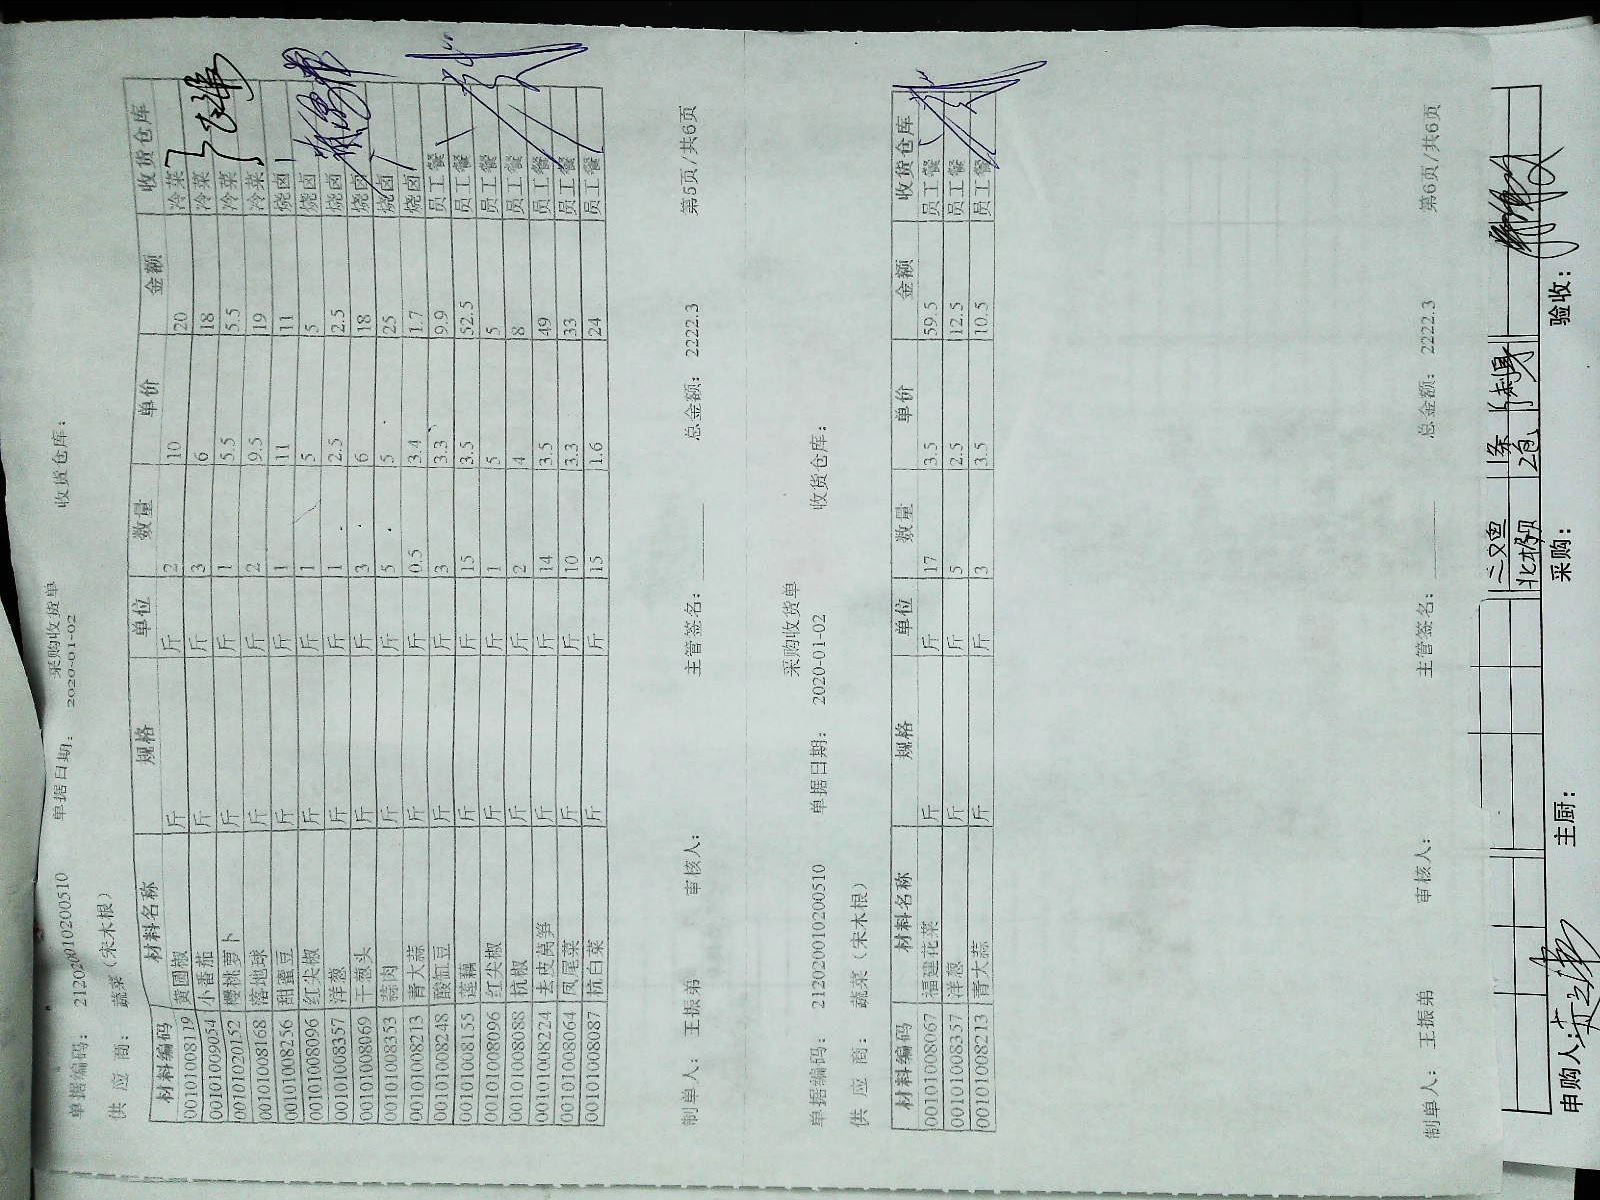 采购收货单
单据编码： 2120200102000510 单据日期： 2020-01-02 收货仓库：
供 应 商： 蔬菜（宋木根）
材料编码 材料名称 规格 单位 数量 单价 金额 收货仓库
00101008119 黄圆椒 斤 斤 2 10 20 冷菜
00101009054 小番茄 斤 斤 3 6 18 冷菜
00101020152 樱桃萝卜 斤 斤 1 5.5 5.5 冷菜
00101008168 落地球 斤 斤 2 9.5 19 冷菜
00101008256 甜蜜豆 斤 斤 1 11 11 烧卤
00101008096 红尖椒 斤 斤 1 5 5 烧卤
00101008357 洋葱 斤 斤 1 2.5 2.5 烧卤
00101008069 干葱头 斤 斤 3 6 18 烧卤
00101008353 蒜肉 斤 斤 5 5 25 烧卤
00101008213 青大蒜 斤 斤 0.5 3.4 1.7 烧卤
00101008248 酸缸豆 斤 斤 3 3.3 9.9 员工餐
00101008155 莲藕 斤 斤 15 3.5 52.5 员工餐
00101008096 红尖椒 斤 斤 1 5 5 员工餐
00101008088 杭椒 斤 斤 2 4 8 员工餐
00101008224 去皮莴笋 斤 斤 14 3.5 49 员工餐
00101008064 凤尾菜 斤 斤 10 3.3 33 员工餐
00101008087 杭白菜 斤 斤 15 1.6 24 员工餐
制单人： 王振弟 审核人： 主管签名： 总金额： 2222.3 第5页/共6页
采购收货单
单据编码： 2120200102000510 单据日期： 2020-01-02 收货仓库：
供 应 商： 蔬菜（宋木根）
材料编码 材料名称 规格 单位 数量 单价 金额 收货仓库
00101008067 福建花菜 斤 斤 17 3.5 59.5 员工餐
00101008357 洋葱 斤 斤 5 2.5 12.5 员工餐
00101008213 青大蒜 斤 斤 3 3.5 10.5 员工餐
制单人： 王振弟 审核人： 主管签名： 总金额： 2222.3 第6页/共6页
三文鱼 1条 刺身
北极贝 2包
申购人： 主厨： 采购： 验收：